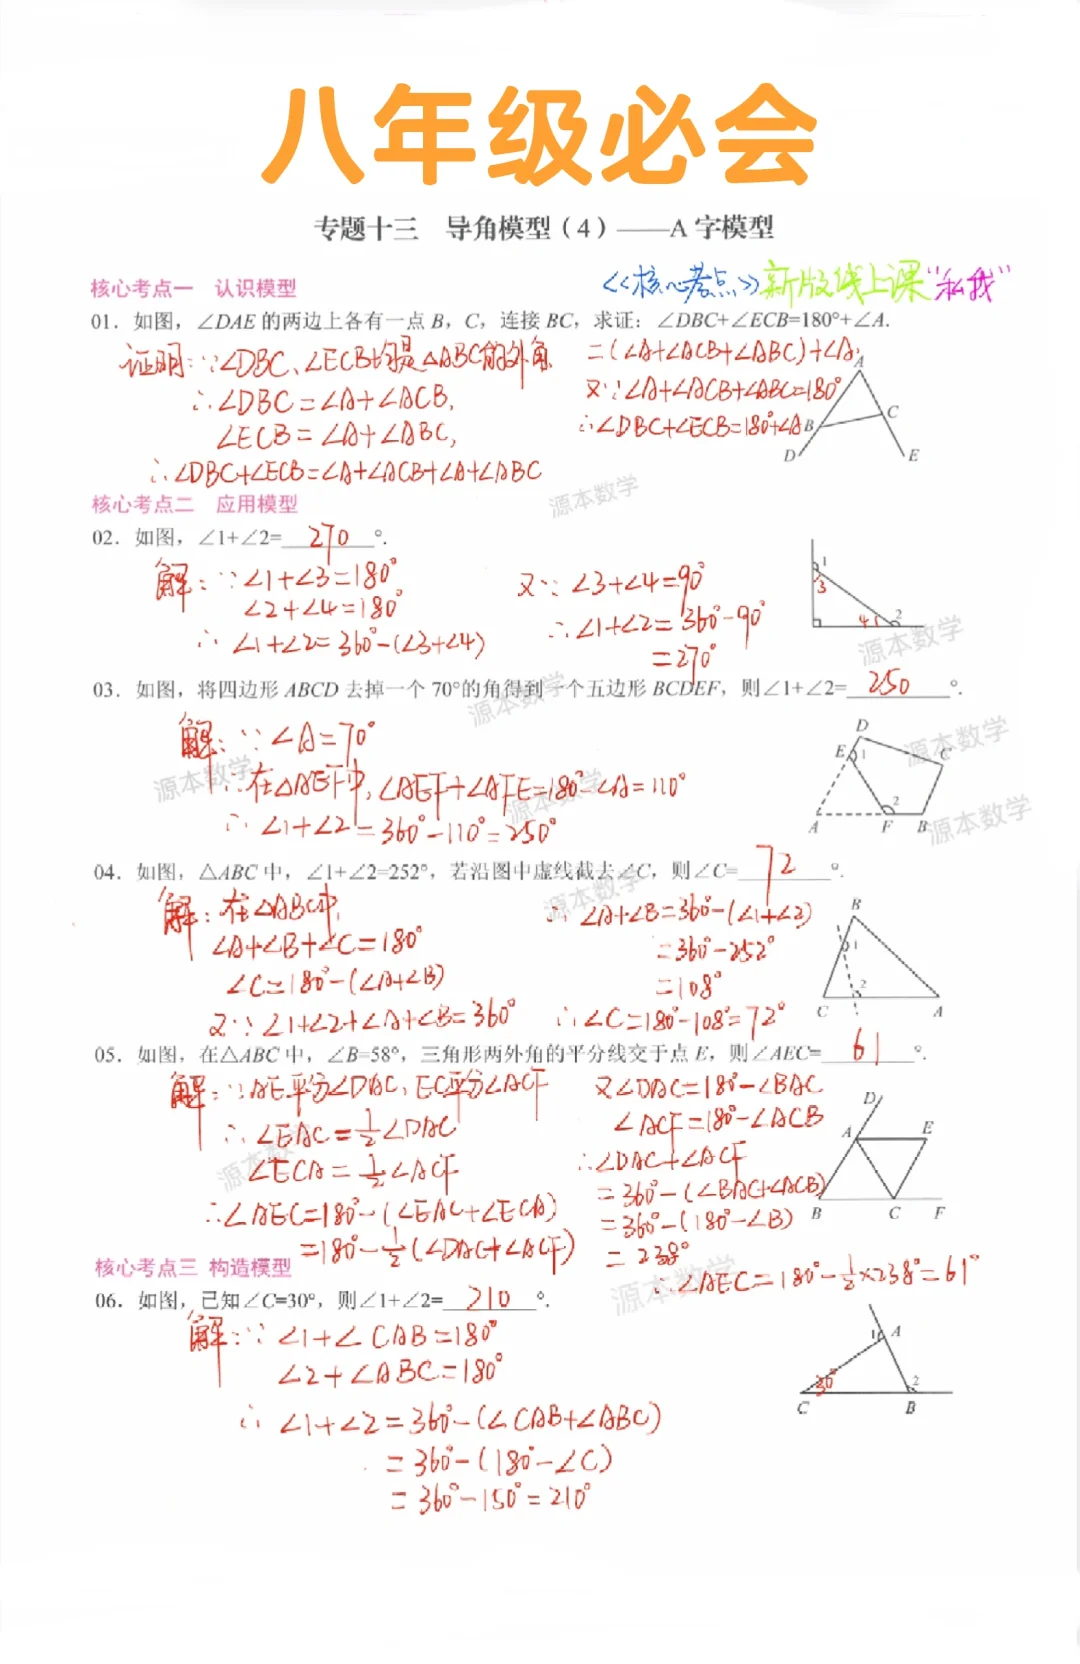 八年级必会
专题十三 导角模型(4)——A字模型
核心考点一 认识模型
《核心考点》新版线上课“私我”
01. 如图，∠DAE的两边上各有一点B，C，连接BC，求证：∠DBC+∠ECB=180°+∠A.
证明：∵∠DBC、∠ECB均是△ABC的外角
∴∠DBC=∠A+∠ACB,
∠ECB=∠A+∠ABC,
∴∠DBC+∠ECB=∠A+∠ACB+∠A+∠ABC
=(∠A+∠ACB+∠ABC)+∠A,
又∵∠A+∠ACB+∠ABC=180°
∴∠DBC+∠ECB=180°+∠A
A
B
C
D
E
源本数学
核心考点二 应用模型
02. 如图，∠1+∠2=270°.
解：∵∠1+∠3=180°
∠2+∠4=180°
∴∠1+∠2=360°-(∠3+∠4)
又∵∠3+∠4=90°
∴∠1+∠2=360°-90°
=270°
1
3
4
2
源本数学
03. 如图，将四边形ABCD去掉一个70°的角得到一个五边形BCDEF，则∠1+∠2=250°.
源本数学
解：∵∠A=70°
∴在△AEF中，∠AEF+∠AFE=180°-∠A=110°
∴∠1+∠2=360°-110°=250°
源本数学
源本数学
D
E
1
C
2
A
F
B
源本数学
源本数学
04. 如图，△ABC中，∠1+∠2=252°，若沿图中虚线截去∠C，则∠C=72°.
源本数学
解：在△ABC中，
∠A+∠B+∠C=180°
∠C=180°-(∠A+∠B)
又∵∠1+∠2+∠A+∠B=360°
∴∠A+∠B=360°-(∠1+∠2)
=360°-252°
=108°
∴∠C=180°-108°=72°
B
1
2
C
A
05. 如图，在△ABC中，∠B=58°，三角形两外角的平分线交于点E，则∠AEC=61°.
解：∵AE平分∠DAC，EC平分∠ACF
∴∠EAC=½∠DAC
∠ECA=½∠ACF
∴∠AEC=180°-(∠EAC+∠ECA)
=180°-½(∠DAC+∠ACF)
又∠DAC=180°-∠BAC
∠ACF=180°-∠ACB
∴∠DAC+∠ACF
=360°-(∠BAC+∠ACB)
=360°-(180°-∠B)
=238°
∴∠AEC=180°-½×238°=61°
D
A
E
B
C
F
源本数学
源本数学
核心考点三 构造模型
06. 如图，已知∠C=30°，则∠1+∠2=210°.
解：∵∠1+∠CAB=180°
∠2+∠ABC=180°
∴∠1+∠2=360°-(∠CAB+∠ABC)
=360°-(180°-∠C)
=360°-150°=210°
1
A
30°
2
C
B